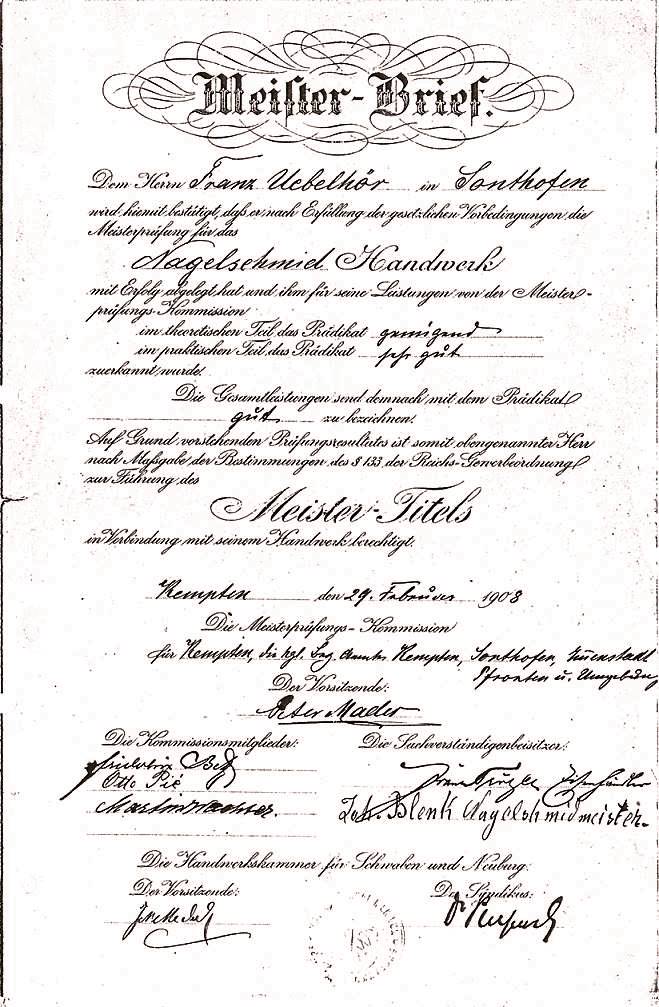 Meister-Brief.
Dem Herrn Franz Uebelhör in Sonthofen
wird hiemit bestätigt, dass er nach Erfüllung der gesetzlichen Vorbedingungen die
Meisterprüfung für das
Nagelschmid Handwerk
mit Erfolg abgelegt hat und ihm für seine Leistungen von der Meister-
prüfungs-Kommission
im theoretischen Teil das Prädikat genügend
im praktischen Teil das Prädikat sehr gut
zuerkannt wurde.
Die Gesamtleistungen send demnach mit dem Prädikat
gut zu bezeichnen.
Auf Grund vorstehenden Prüfungsresultates ist somit obengenannter Herr
nach Maßgabe der Bestimmungen des § 133 der Reichs-Gewerbeordnung
zur Führung des
Meister-Titels
in Verbindung mit seinem Handwerk berechtigt.
Kempten den 29. Februar 1908
Die Meisterprüfungs-Kommission
für Kempten, die kgl. Bez. Ämter Kempten, Sonthofen,
Pfronten u. Umgebung
Der Vorsitzende:
Peter Mader
Die Kommissionsmitglieder: Die Sachverständigenbeisitzer:
Otto Pić
Martin Wachter. Joh. Blenk Nagelschmidmeister
Die Handwerkskammer für Schwaben und Neuburg:
Der Vorsitzende: Der Syndikus: